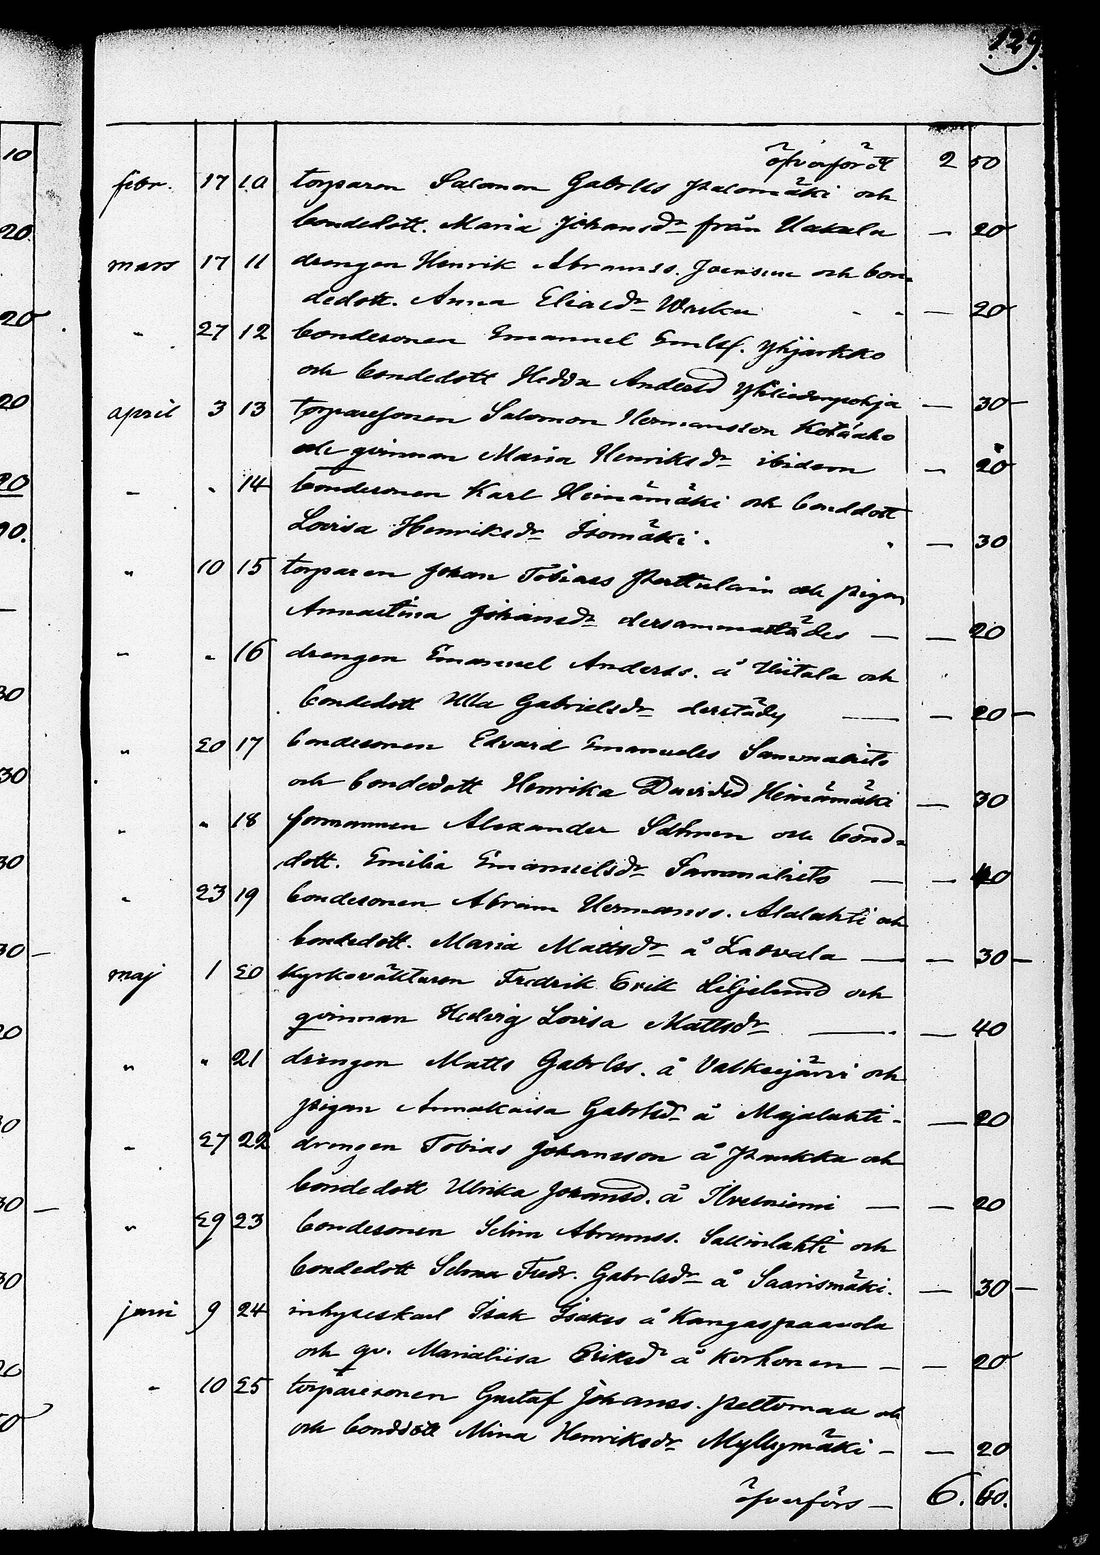 129.
öfverfördt 2 50
febr. 17 10 torparen Salomon Gabrlss Palomäki och
bondedott. Maria Johansdr från Uakala — 20
mars 17 11 drengen Henrik Abramss. Joensuu och bon-
dedott. Anna Eliaedr — 20
" 27 12 bondesonen Emanuel Emlsf. Yhjarkko
och bondedott Hedda Andersd — 30 —
april 3 13 torparesonen Salomon Hermansson Kotaaho
och qvinnan Maria Henriksdr ibidem — 20
" " 14 bondesonen Karl Heinämäki och bonddott
Lovisa Henriksdr Isomäki. — 30
" 10 15 torparen Johan Tobiass Perttulain och pigan
Annastina Johansdr dersammastädes — — 20
" " 16 drengen Emanuel Anderss. å Viitala och
bondedott Ulla Gabrielsdr derstädes — — 20 —
" 20 17 bondesonen Edvard Emanuels Sammalisto
och bondedott Henrika Davidsd Heinämäki — 30
" " 18 formannen Alexander Sahman och bond-
dott. Emilia Emanuelsdr Sammalisto — — 40
" 23 19 bondesonen Abram Hermanss. Alalahti och
bondedott. Maria Mattsdr å Ladvala — — 30 —
maj 1 20 kyrkoväktaren Fredrik Erik Liljelund och
qvinnan Hedvig Lovisa Mattsdr — — 40
" " 21 drengen Matts Gabrlss. å Valkeajärvi och
pigan Annakaisa Gabrlsdr å Majalahti - — 20
" 27 22 drengen Tobias Johansson å Paukku och
bondedott Ulrika Johansd. å Ilvesniemi — — 20
" 29 23 bondesonen Selim Abramss. Sallinlahti och
bondedott Selma Fredr. Gabrlsdr å Saarismäki. — 30 —
juni 9 24 inhyseskarl Isak Isakss å Kangaspaavola
och qv. Marialiisa Eriksdr å Korhonen — — 20
" 10 25 torparesonen Gustaf Johanss. Peltomaa och
och bonddott Mina Henriksdr Myllymäki - — 20
öfverförs — 6. 60.